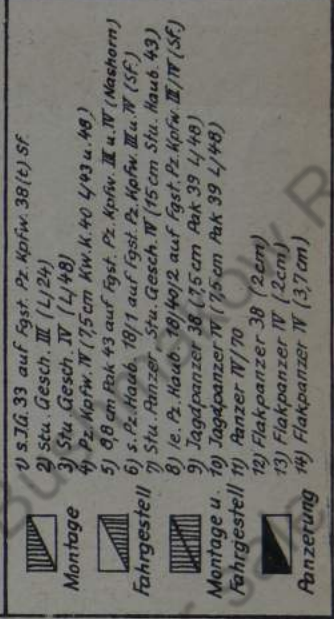 Montage
Fahrgestell
Montage u.
Fahrgestell
Panzerung
1) s.IG. 33 auf Fgst. Pz. Kpfw. 38(t) Sf.
2) Stu. Gesch. III (L/24)
3) Stu. Gesch. IV (L/48)
4) Pz Kpfw. IV (7,5cm Kw.K.40 L/43 u. 48)
5) 8,8 cm Pak 43 auf Fgst. Pz. Kpfw. III u. IV (Nashorn)
6) s. Pz. Haub. 18/1 auf Fgst. Pz. Kpfw. III u. IV (Sf.)
7) Stu. Panzer Stu. Gesch. IV (15cm Stu. Haub. 43)
8) le. Pz. Haub. 18/40/2 auf Fgst. Pz. Kpfw. III/IV (Sf.)
9) Jagdpanzer 38 (7,5cm Pak 39 L/48)
10) Jagdpanzer IV (7,5cm Pak 39 L/48)
11) Panzer IV/70
12) Flakpanzer 38 (2cm)
13) Flakpanzer IV (2cm)
14) Flakpanzer IV (3,7cm)